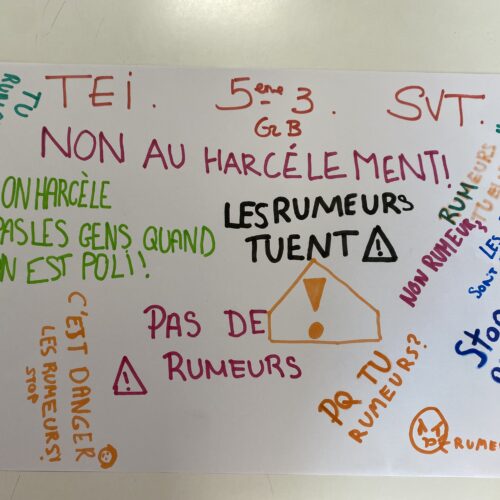 TEI. 5ème 3. SVT.
Gr B
NON AU HARCÉLEMENT!
ON HARCÈLE
PAS LES GENS QUAND
ON EST POLI!!
LES RUMEURS
TUENT
RUMEURS
TUENT
NON RUMEURS
LES
SONT
Stop
PAS DE
RUMEURS
C'EST DANGER
LES RUMEURS!
STOP
PQ TU
RUMEURS?
RUME
TU